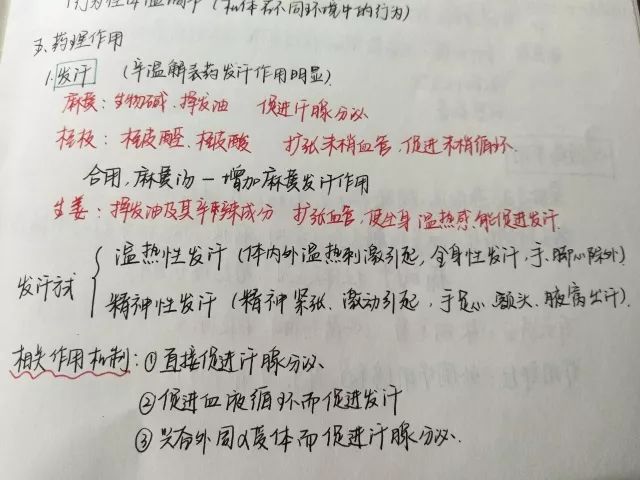 行为性体温调节（机体不同环境中的行为）
五.药理作用
1.发汗 （辛温解表药发汗作用明显）
麻黄：生物碱、挥发油 促进汗腺分泌
桂枝：桂皮醛、桂皮酸 扩张末梢血管,促进末梢循环.
合用,麻黄汤—增加麻黄发汗作用
生姜：挥发油及其辛辣成分 扩张血管,使全身温热感,能促进发汗.
发汗方式
温热性发汗（体内外温热刺激引起,全身性发汗,手、脚心除外）
精神性发汗（精神紧张、激动引起,手足心、额头、腋窝出汗）.
相关作用机制:①直接促进汗腺分泌、
②促进血液循环而促进发汗
③兴奋外周α受体而促进汗腺分泌.